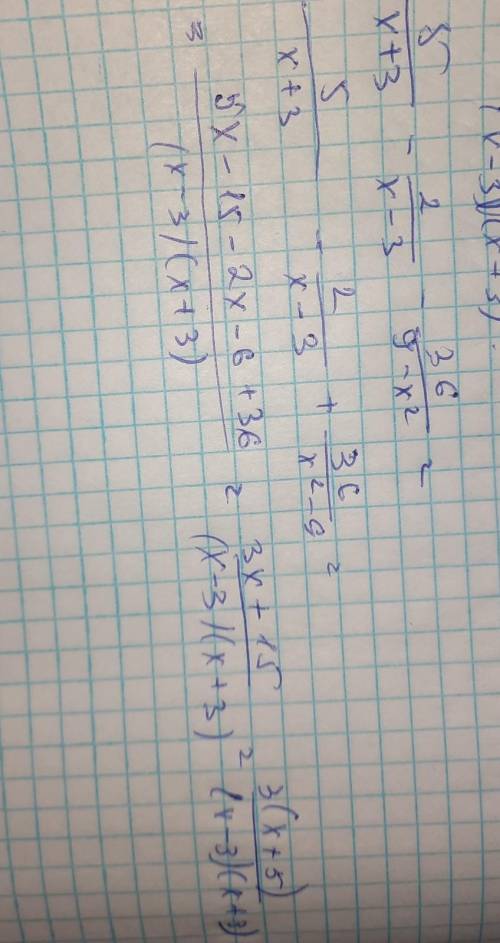 (x-3)(x+3)
5/(x+3) - 2/(x-3) - 36/(9-x²) =
5/(x+3) - 2/(x-3) + 36/(x²-9) =
= (5x-15-2x-6+36)/((x-3)(x+3)) = (3x+15)/((x-3)(x+3)) = 3(x+5)/((x-3)(x+3))